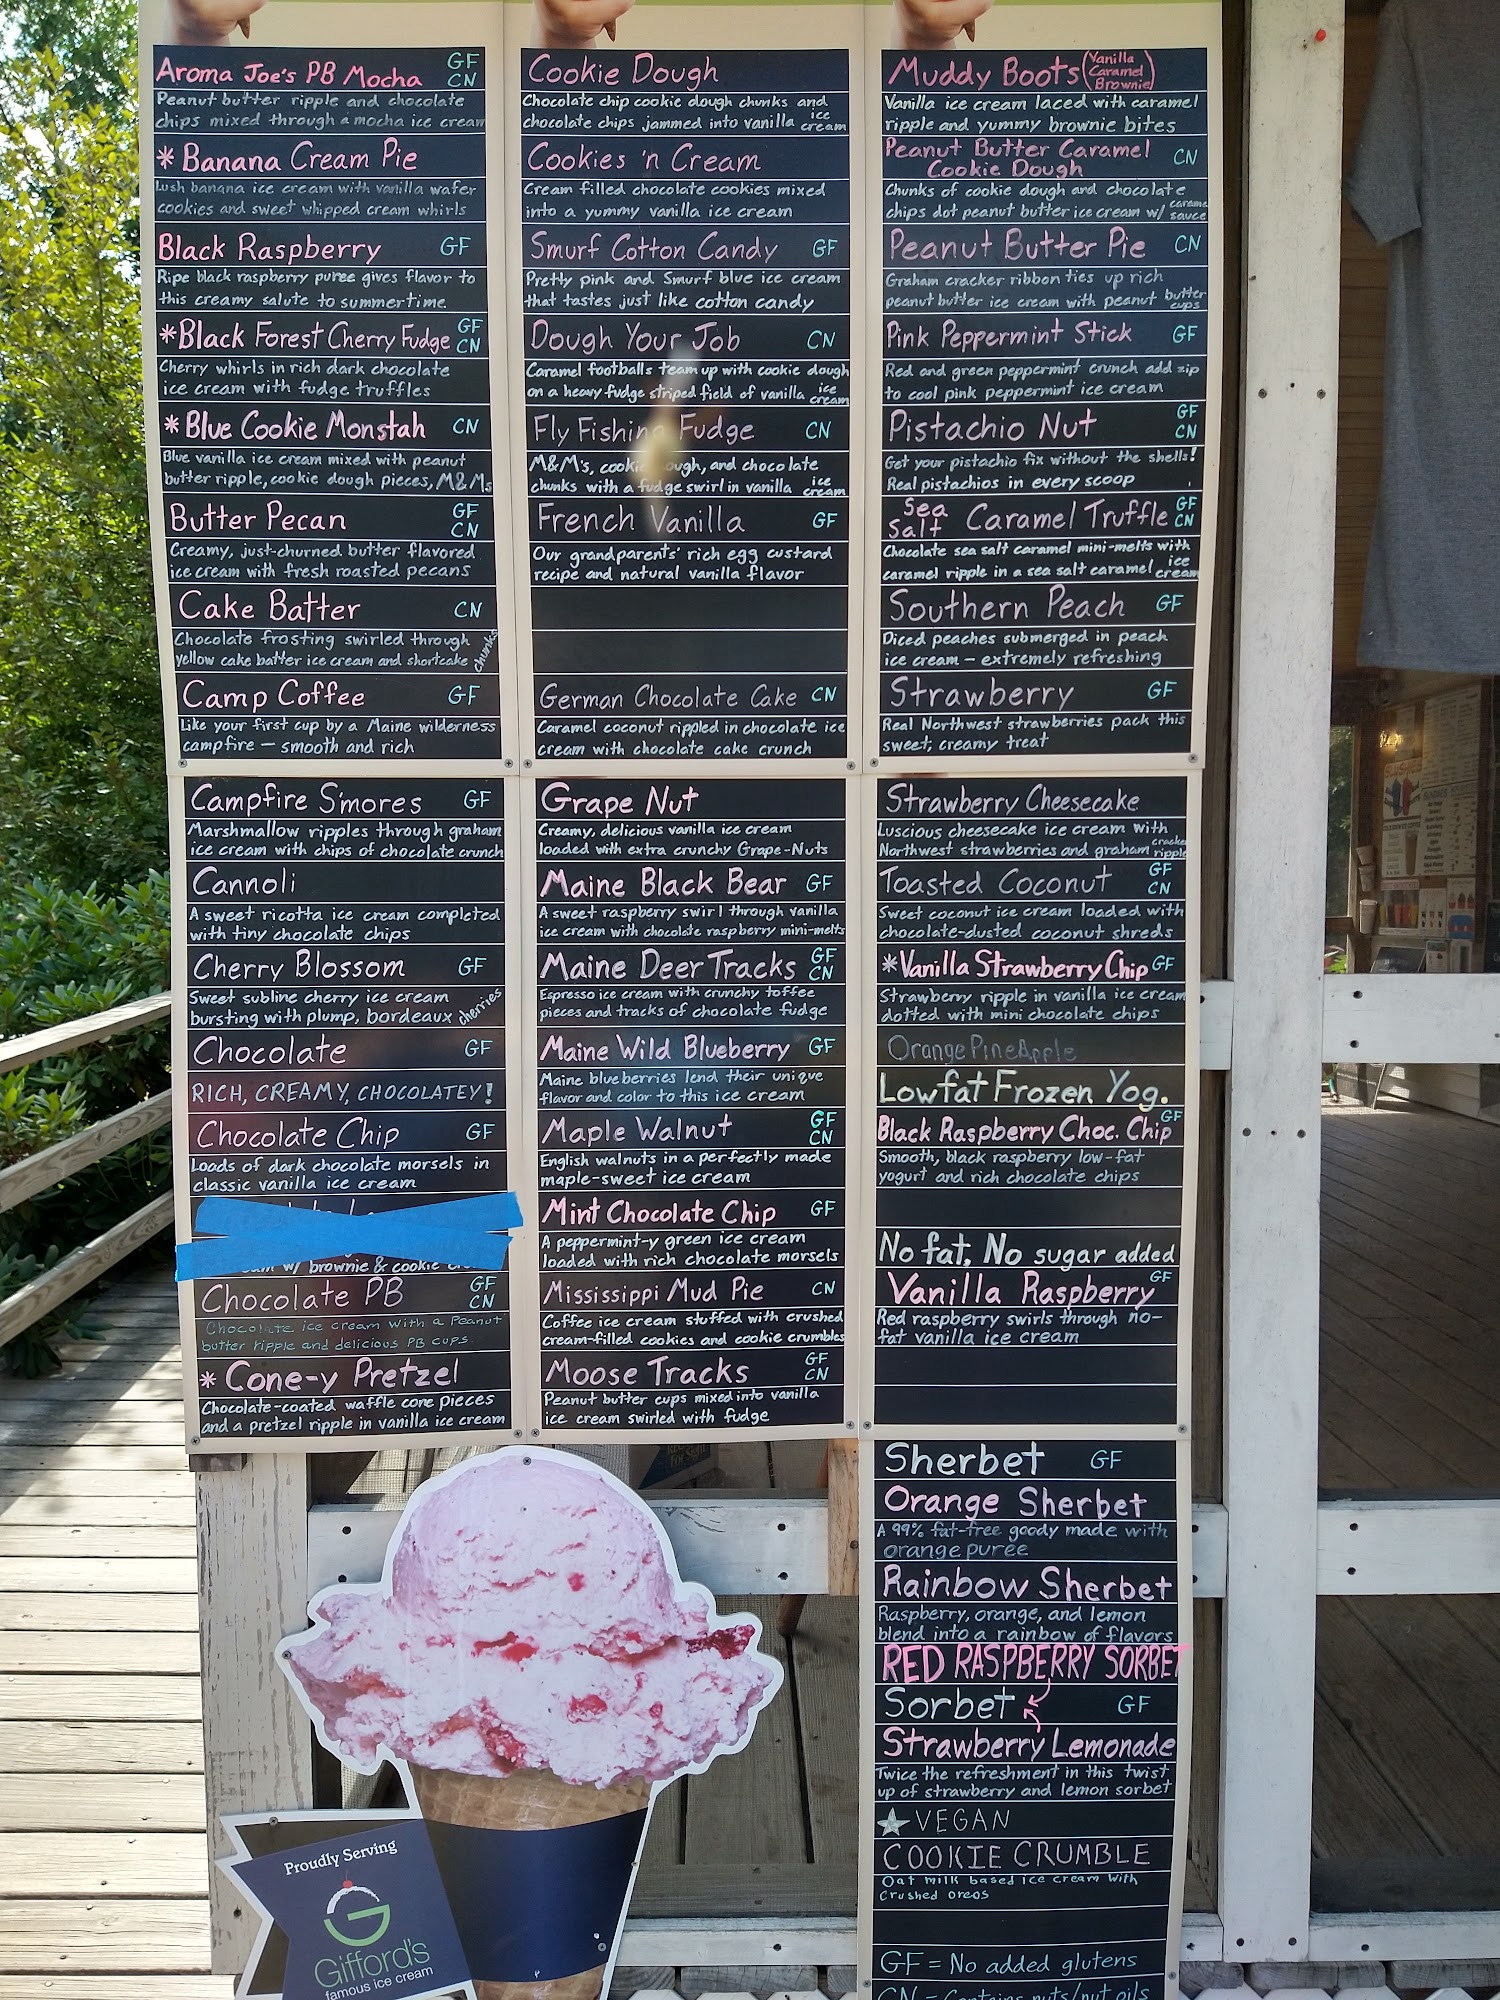 Aroma Joe's PB Mocha GF CN
Peanut butter ripple and chocolate
chips mixed through a mocha ice cream
* Banana Cream Pie
Lush banana ice cream with vanilla wafer
cookies and sweet whipped cream whirls
Black Raspberry GF
Ripe black raspberry puree gives flavor to
this creamy salute to summertime.
*Black Forest Cherry Fudge GF CN
Cherry whirls in rich dark chocolate
ice cream with fudge truffles
*Blue Cookie Monstah CN
Blue vanilla ice cream mixed with peanut
butter ripple, cookie dough pieces, M&Ms
Butter Pecan GF CN
Creamy, just-churned butter flavored
ice cream with fresh roasted pecans
Cake Batter CN
Chocolate frosting swirled through
yellow cake batter ice cream and shortcake chunks
Camp Coffee GF
Like your first cup by a Maine wilderness
campfire — smooth and rich
Campfire S'mores GF
Marshmallow ripples through graham
ice cream with chips of chocolate crunch
Cannoli
A sweet ricotta ice cream completed
with tiny chocolate chips
Cherry Blossom GF
Sweet subline cherry ice cream
bursting with plump, bordeaux cherries
Chocolate GF
RICH, CREAMY, CHOCOLATEY!
Chocolate Chip GF
Loads of dark chocolate morsels in
classic vanilla ice cream
w/ brownie & cookie
Chocolate PB GF CN
Chocolate ice cream with a Peanut
butter ripple and delicious PB cups.
* Cone-y Pretzel
Chocolate-coated waffle cone pieces
and a pretzel ripple in vanilla ice cream
Cookie Dough
Chocolate chip cookie dough chunks and
chocolate chips jammed into vanilla ice cream
Cookies 'n Cream
Cream filled chocolate cookies mixed
into a yummy vanilla ice cream
Smurf Cotton Candy GF
Pretty pink and Smurf blue ice cream
that tastes just like cotton candy
Dough Your Job CN
Caramel footballs team up with cookie dough
on a heavy fudge striped field of vanilla ice cream
Fly Fishing Fudge CN
M&M's, cookie dough, and chocolate
chunks with a fudge swirl in vanilla ice cream
French Vanilla GF
Our grandparents' rich egg custard
recipe and natural vanilla flavor
German Chocolate Cake CN
Caramel coconut rippled in chocolate ice
cream with chocolate cake crunch
Grape Nut
Creamy, delicious vanilla ice cream
loaded with extra crunchy Grape-Nuts
Maine Black Bear GF
A sweet raspberry swirl through vanilla
ice cream with chocolate raspberry mini-melts
Maine Deer Tracks GF CN
Espresso ice cream with crunchy toffee
pieces and tracks of chocolate fudge
Maine Wild Blueberry GF
Maine blueberries lend their unique
flavor and color to this ice cream
Maple Walnut GF CN
English walnuts in a perfectly made
maple-sweet ice cream
Mint Chocolate Chip GF
A peppermint-y green ice cream
loaded with rich chocolate morsels
Mississippi Mud Pie CN
Coffee ice cream stuffed with crushed
cream-filled cookies and cookie crumbles
Moose Tracks GF CN
Peanut butter cups mixed into vanilla
ice cream swirled with fudge
Muddy Boots (Vanilla Caramel Brownie)
Vanilla ice cream laced with caramel
ripple and yummy brownie bites
Peanut Butter Caramel CN
Cookie Dough
Chunks of cookie dough and chocolate
chips dot peanut butter ice cream w/ caramel sauce
Peanut Butter Pie CN
Graham cracker ribbon ties up rich
peanut butter ice cream with peanut butter cups
Pink Peppermint Stick GF
Red and green peppermint crunch add zip
to cool pink peppermint ice cream
Pistachio Nut GF CN
Get your pistachio fix without the shells!
Real pistachios in every scoop
Sea Salt Caramel Truffle GF CN
Chocolate sea salt caramel mini-melts with
caramel ripple in a sea salt caramel ice cream
Southern Peach GF
Diced peaches submerged in peach
ice cream — extremely refreshing
Strawberry GF
Real Northwest strawberries pack this
sweet, creamy treat
Strawberry Cheesecake
Luscious cheesecake ice cream with
Northwest strawberries and graham cracker ripple
Toasted Coconut GF CN
Sweet coconut ice cream loaded with
chocolate-dusted coconut shreds
*Vanilla Strawberry Chip GF
Strawberry ripple in vanilla ice cream
dotted with mini chocolate chips
Orange PineApple
Lowfat Frozen Yog.
Black Raspberry Choc. Chip GF
Smooth, black raspberry low-fat
yogurt and rich chocolate chips
No fat, No sugar added
Vanilla Raspberry GF
Red raspberry swirls through no-
fat vanilla ice cream
Sherbet GF
Orange Sherbet
A 99% fat-free goody made with
orange puree
Rainbow Sherbet
Raspberry, orange, and lemon
blend into a rainbow of flavors
RED RASPBERRY SORBET
Sorbet GF
Strawberry Lemonade
Twice the refreshment in this twist
up of strawberry and lemon sorbet
VEGAN
COOKIE CRUMBLE
Oat milk based ice cream with
Crushed oreos
GF = No added glutens
CN = Contains nuts/nut oils
Proudly Serving
G
Gifford's
famous ice cream